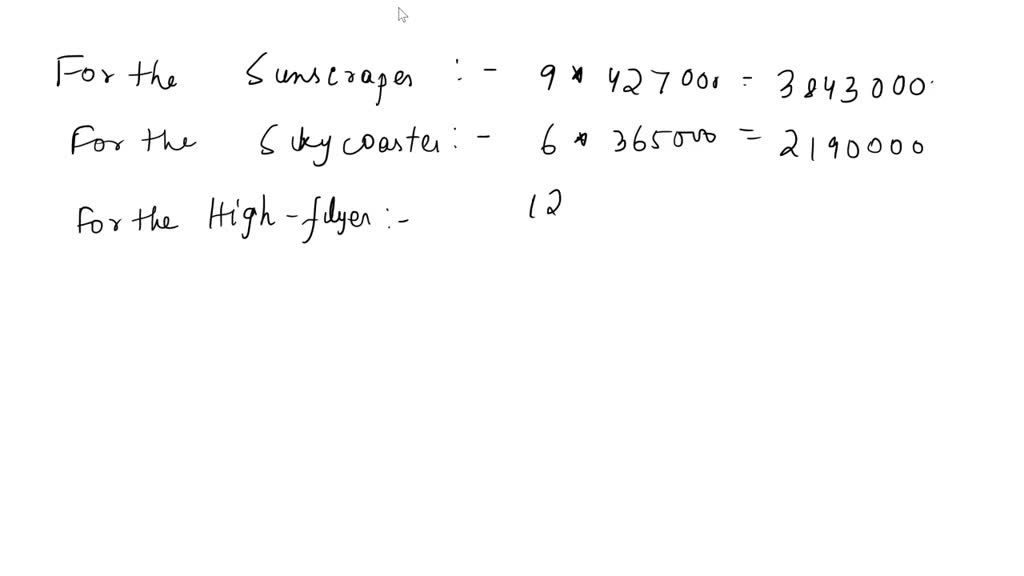 For the Sunscraper :- 9 * 427000 = 3843000.
For the Skycoaster :- 6 * 365000 = 2190000
For the High-flyer :- 12